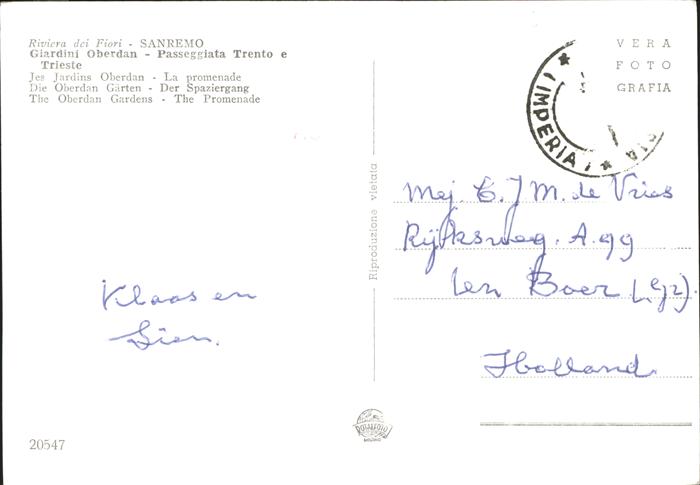 Riviera dei Fiori - SANREMO
Giardini Oberdan - Passeggiata Trento e
Trieste
Jes Jardins Oberdan - La promenade
Die Oberdan Gärten - Der Spaziergang
The Oberdan Gardens - The Promenade
VERA
FOTO
GRAFIA
(IMPERIA)
Riproduzione vietata
Mej. C. J M. de Vries
Rijksweg. A.99
ten Boer (Gr).
Holland
Klaas en
Sien.
ROTALFOTO
MILANO
20547